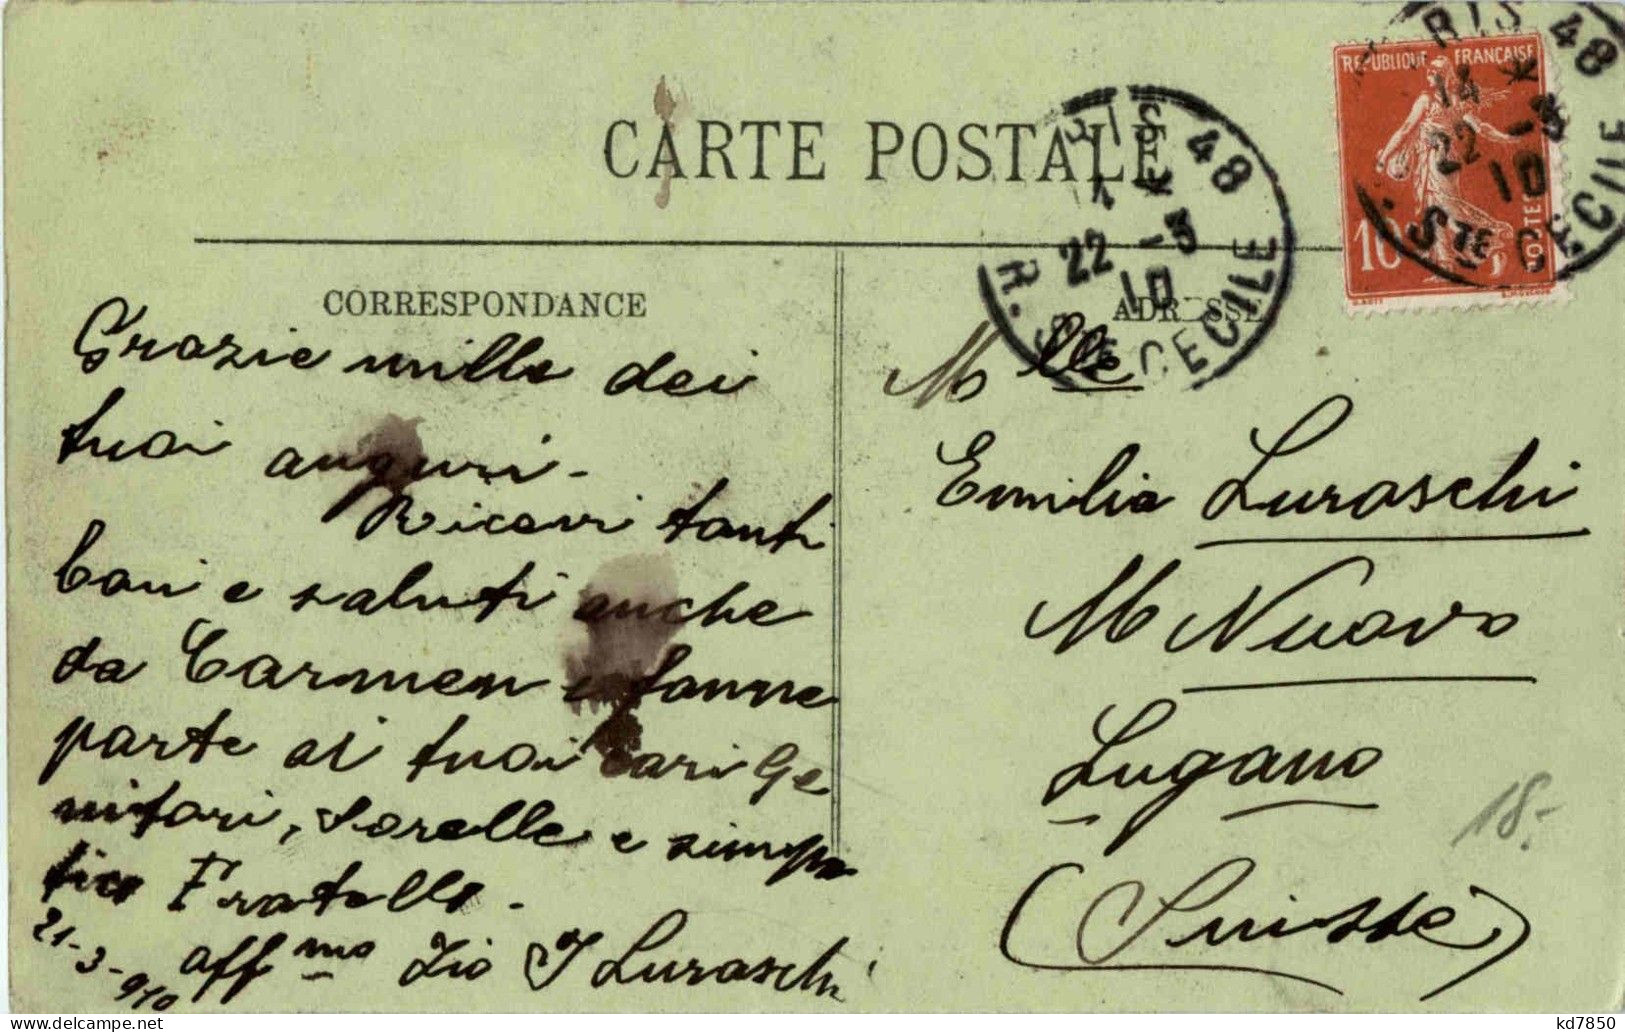 CARTE POSTALE
CORRESPONDANCE
ADRESSE
Grazie mille dei
tuoi auguri -
Ricevi tanti
baci e saluti anche
da Carmen e fanne
parte ai tuoi cari Ge
nitori, Sorelle e simpa
tico Fratello.
21-3-910
aff mo Zio J Luraschi
Mlle
Emilia Luraschi
M Nuovo
Lugano
(Suisse)
18.-
REPUBLIQUE FRANÇAISE
10
POSTES
PARIS 48
14 *
22 -3
10
R. STE CECILE
PARIS 48
22 -3
10
R. STE CECILE
kd7850